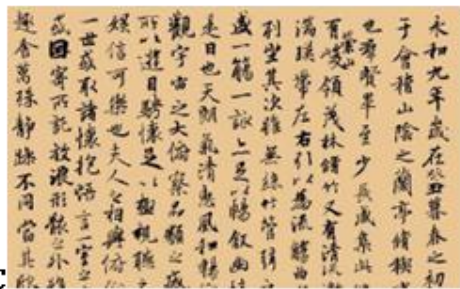 永和九年歲在癸丑暮春之初
于會稽山陰之蘭亭脩禊
也群賢畢至少長咸集此
有崇山峻領茂林脩竹又有清流激
湍暎帶左右引以為流觴曲
列坐其次雖無絲竹管弦
盛一觴一詠亦足以暢敘幽情
是日也天朗氣清惠風和暢
觀宇宙之大俯察品類之盛
所以遊目騁懷足以極視聽之
娛信可樂也夫人之相與俯仰
一世或取諸懷抱悟言一室之
或因寄所託放浪形骸之外雖
趣舍萬殊靜躁不同當其欣